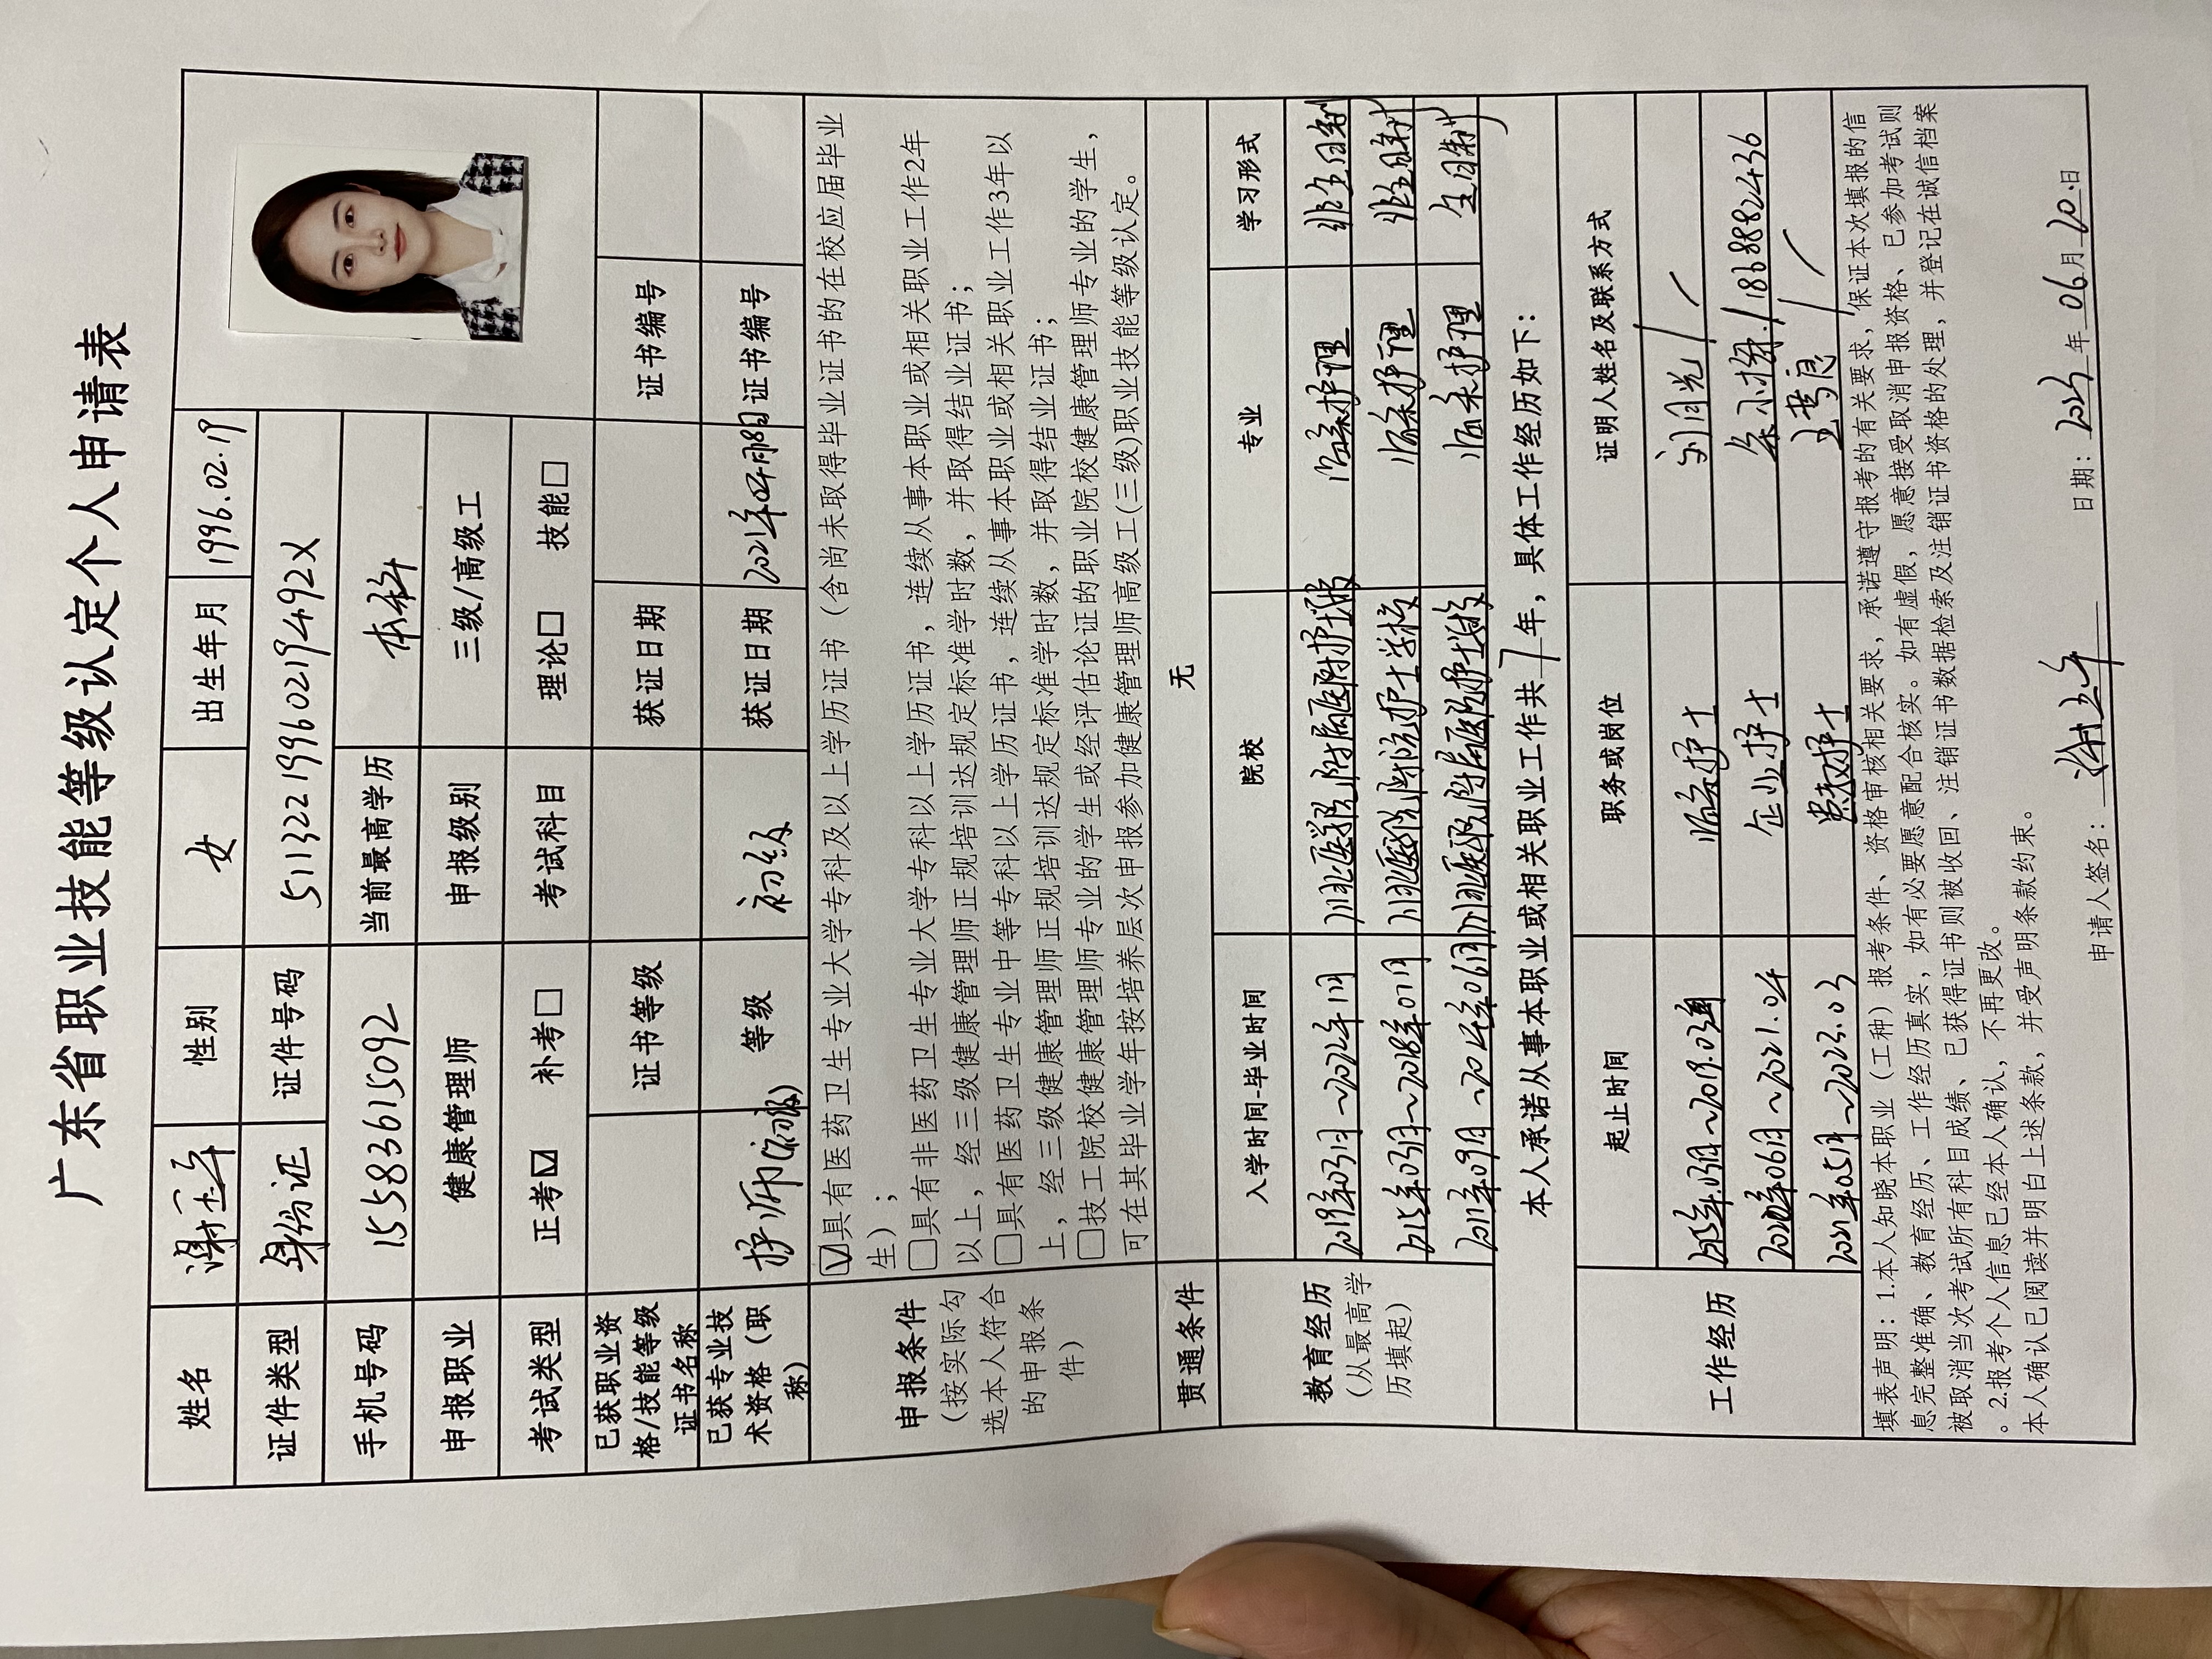 广东省职业技能等级认定个人申请表
姓名 性别 女 出生年月 1996.02.19
证件类型 身份证 证件号码 51132219960219492X
手机号码 15583615092 当前最高学历 本科
申报职业 健康管理师 申报级别 三级/高级工
考试类型 正考☑ 补考□ 考试科目 理论□ 技能□
已获职业资格/技能等级证书名称 证书等级 获证日期 证书编号
已获专业技术资格（职称） 护师(初级) 等级 初级 获证日期 证书编号
申报条件
（按实际勾选本人符合的申报条件）
☑具有医药卫生专业大学专科及以上学历证书（含尚未取得毕业证书的在校应届毕业
生）；
□具有非医药卫生专业大学专科以上学历证书，连续从事本职业或相关职业工作2年
以上，经三级健康管理师正规培训达规定标准学时数，并取得结业证书；
□具有医药卫生专业中等专科以上学历证书，连续从事本职业或相关职业工作3年以
上，经三级健康管理师正规培训达规定标准学时数，并取得结业证书；
□技工院校健康管理师专业的学生或经评估论证的职业院校健康管理师专业的学生，
可在其毕业学年按培养层次申报参加健康管理师高级工(三级)职业技能等级认定。
贯通条件 无
教育经历
（从最高学历填起）
入学时间-毕业时间 院校 专业 学习形式
临床护理 非全日制
临床护理 非全日制
临床护理 全日制
本人承诺从事本职业或相关职业工作共7年，具体工作经历如下：
工作经历
起止时间 职务或岗位 证明人姓名及联系方式
临床护士
企业护士
填表声明：1.本人知晓本职业（工种）报考条件、资格审核相关要求，承诺遵守报考的有关要求，保证本次填报的信
息完整准确、教育经历、工作经历真实，如有必要愿意配合核实。如有虚假，愿意接受取消申报资格、已参加考试则
被取消当次考试所有科目成绩、已获得证书则被收回、注销证书数据检索及注销证书资格的处理，并登记在诚信档案
。2.报考个人信息已经本人确认，不再更改。
本人确认已阅读并明白上述条款，并受声明条款约束。
申请人签名： 日期： 年06月20日